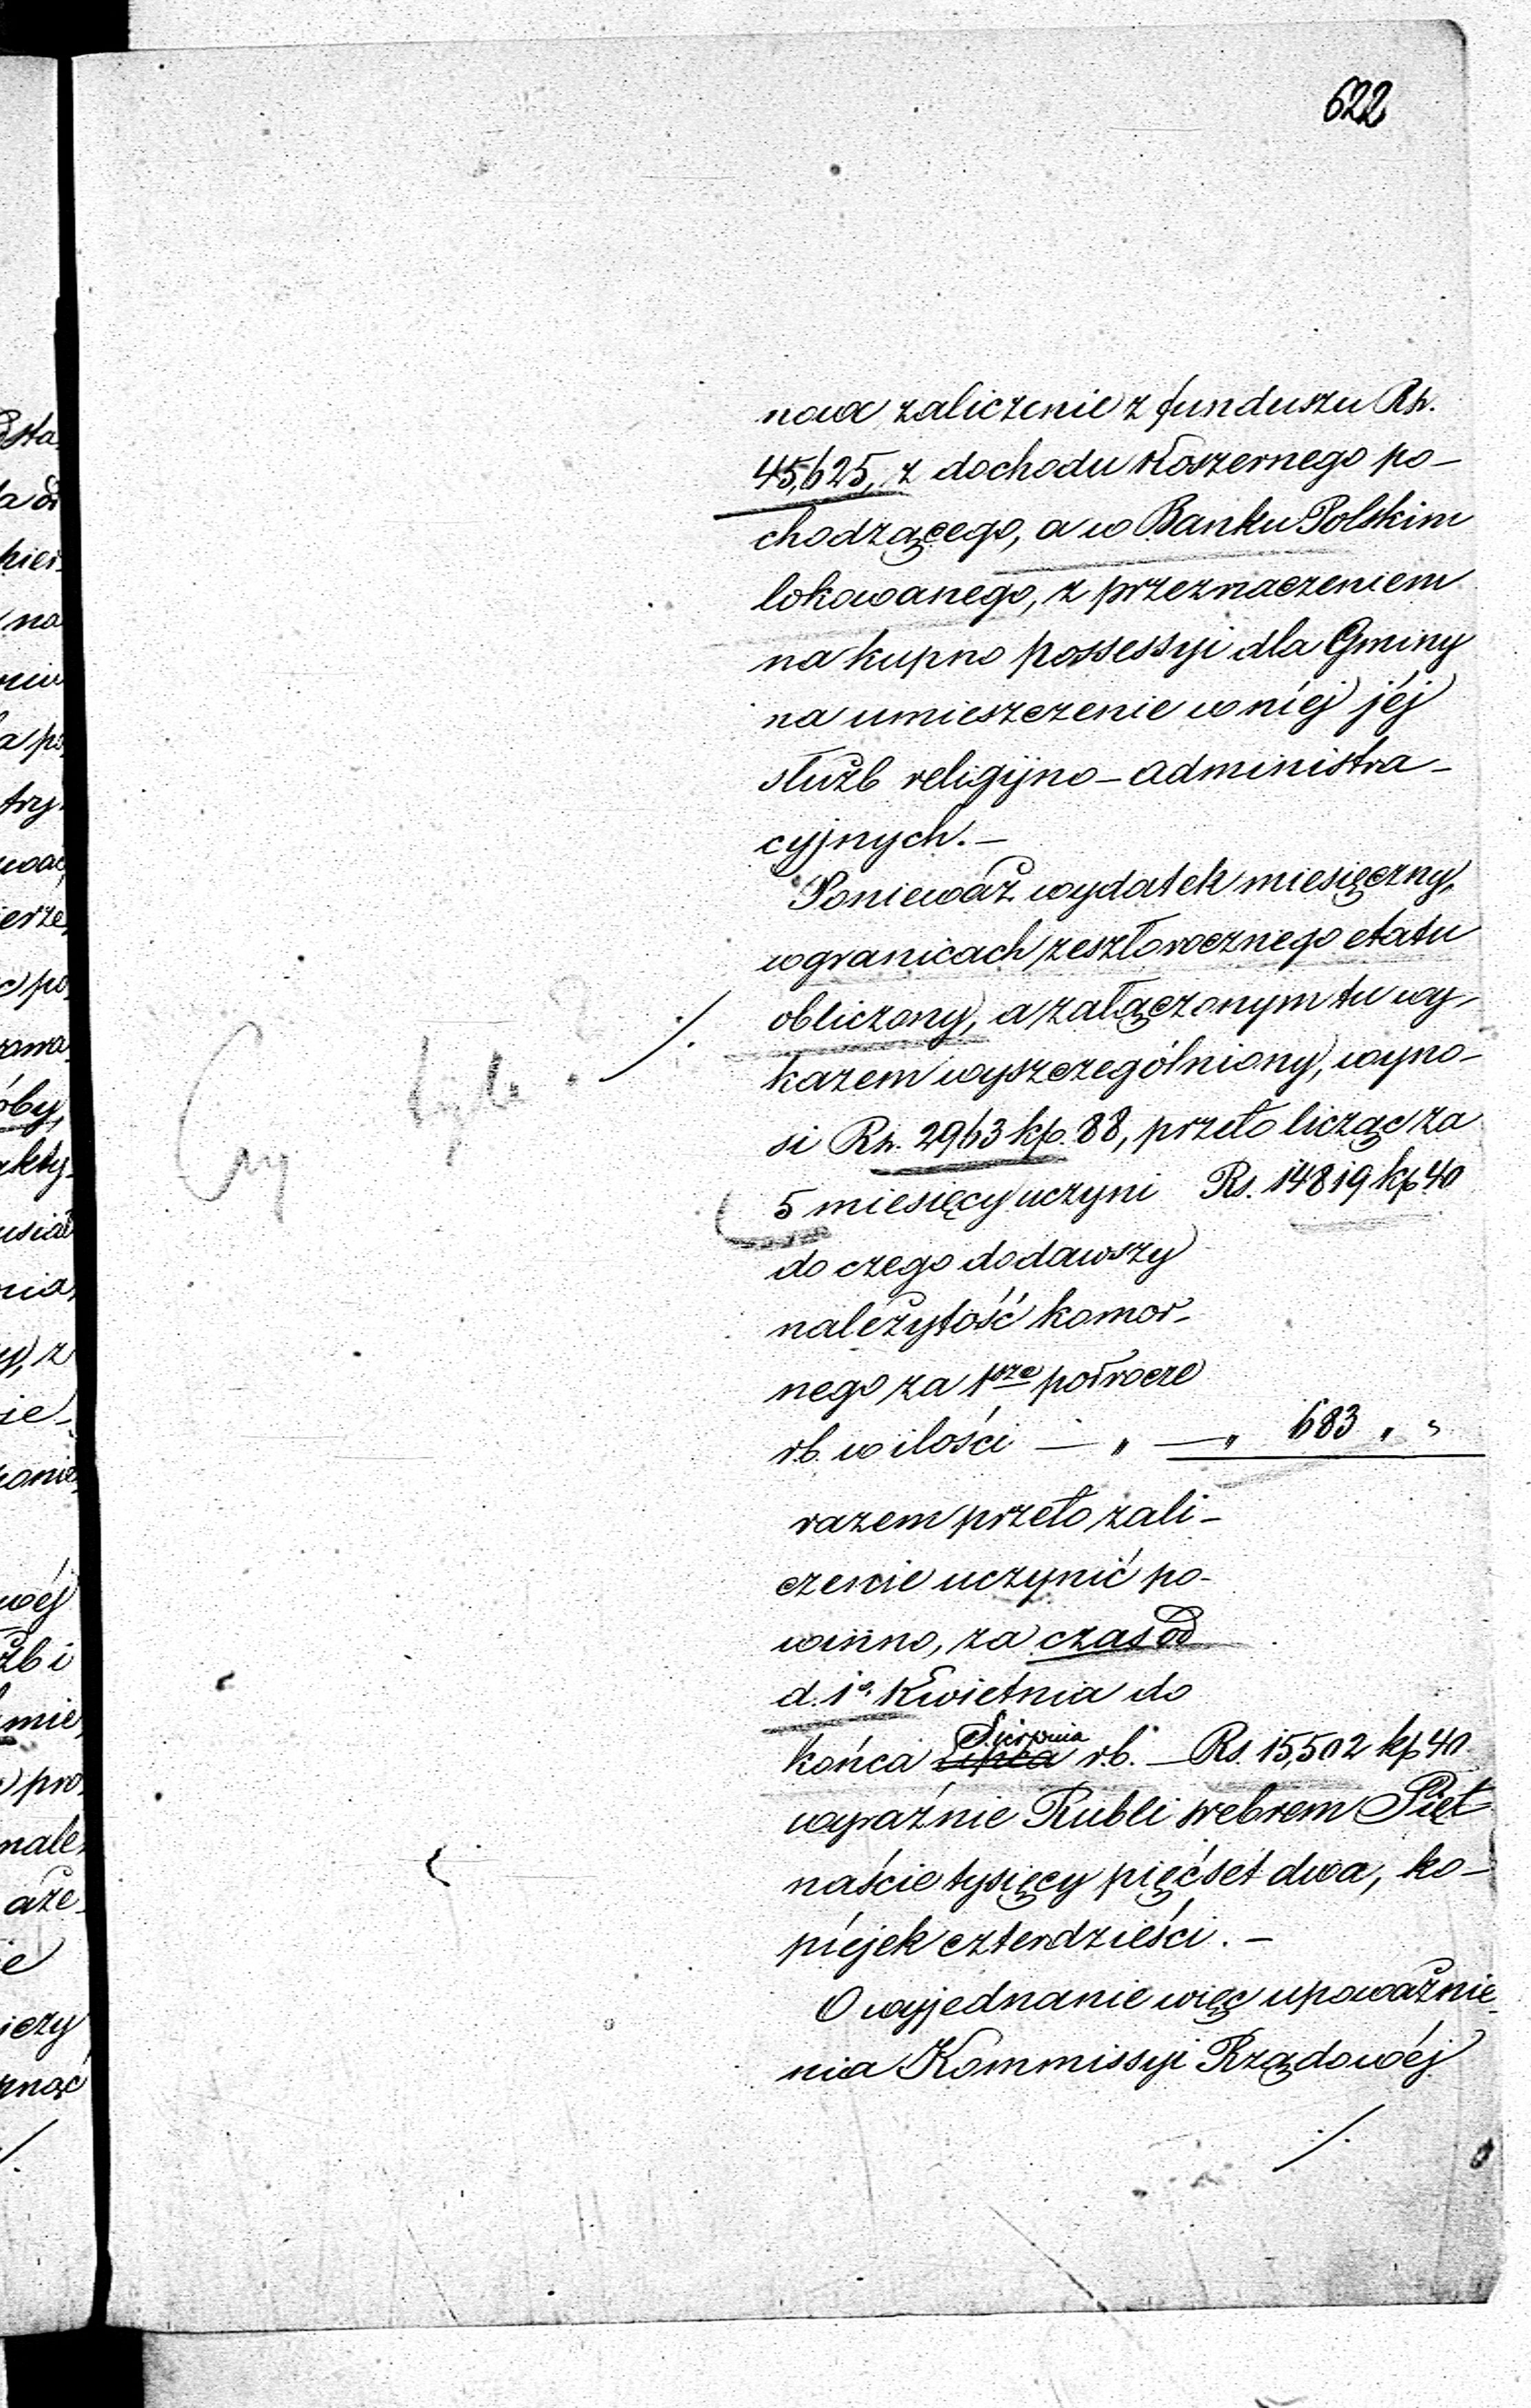 622
nowa zaliczenie z funduszu Rs.
45,625, z dochodu koszernego po-
chodzącego, a w Banku Polskim
lokowanego, z przeznaczeniem
na kupno possessyi dla Gminy
na umieszczenie w niéj jéj
służb religijno-administra-
cyjnych.-
Ponieważ wydatek miesięczny,
w granicach zeszłorocznego etatu
obliczony, a załączonym tu wy-
kazem wyszczególniony, wyno-
si Rs. 2963 kp. 88, przeto licząc za
5 miesięcy uczyni Rs. 14819 kp 40
do czego dodawszy
należytość komor-
nego za 1sze półrocze
rb. w ilości — „ — „ 683 „ „
razem przeto zali-
czenie uczynić po-
winno, za czas od
d. 1o Kwietnia do
Sierpnia
końca Lipca r.b. — Rs. 15,502 kp 40
wyraźnie Rubli srebrem Pięt
naście tysięcy pięćset dwa, ko-
piéjek czterdzieści. -
O wyjednanie więc upoważnie-
nia Kommissyi Rządowéj
./.
Czy tyle ?
./.